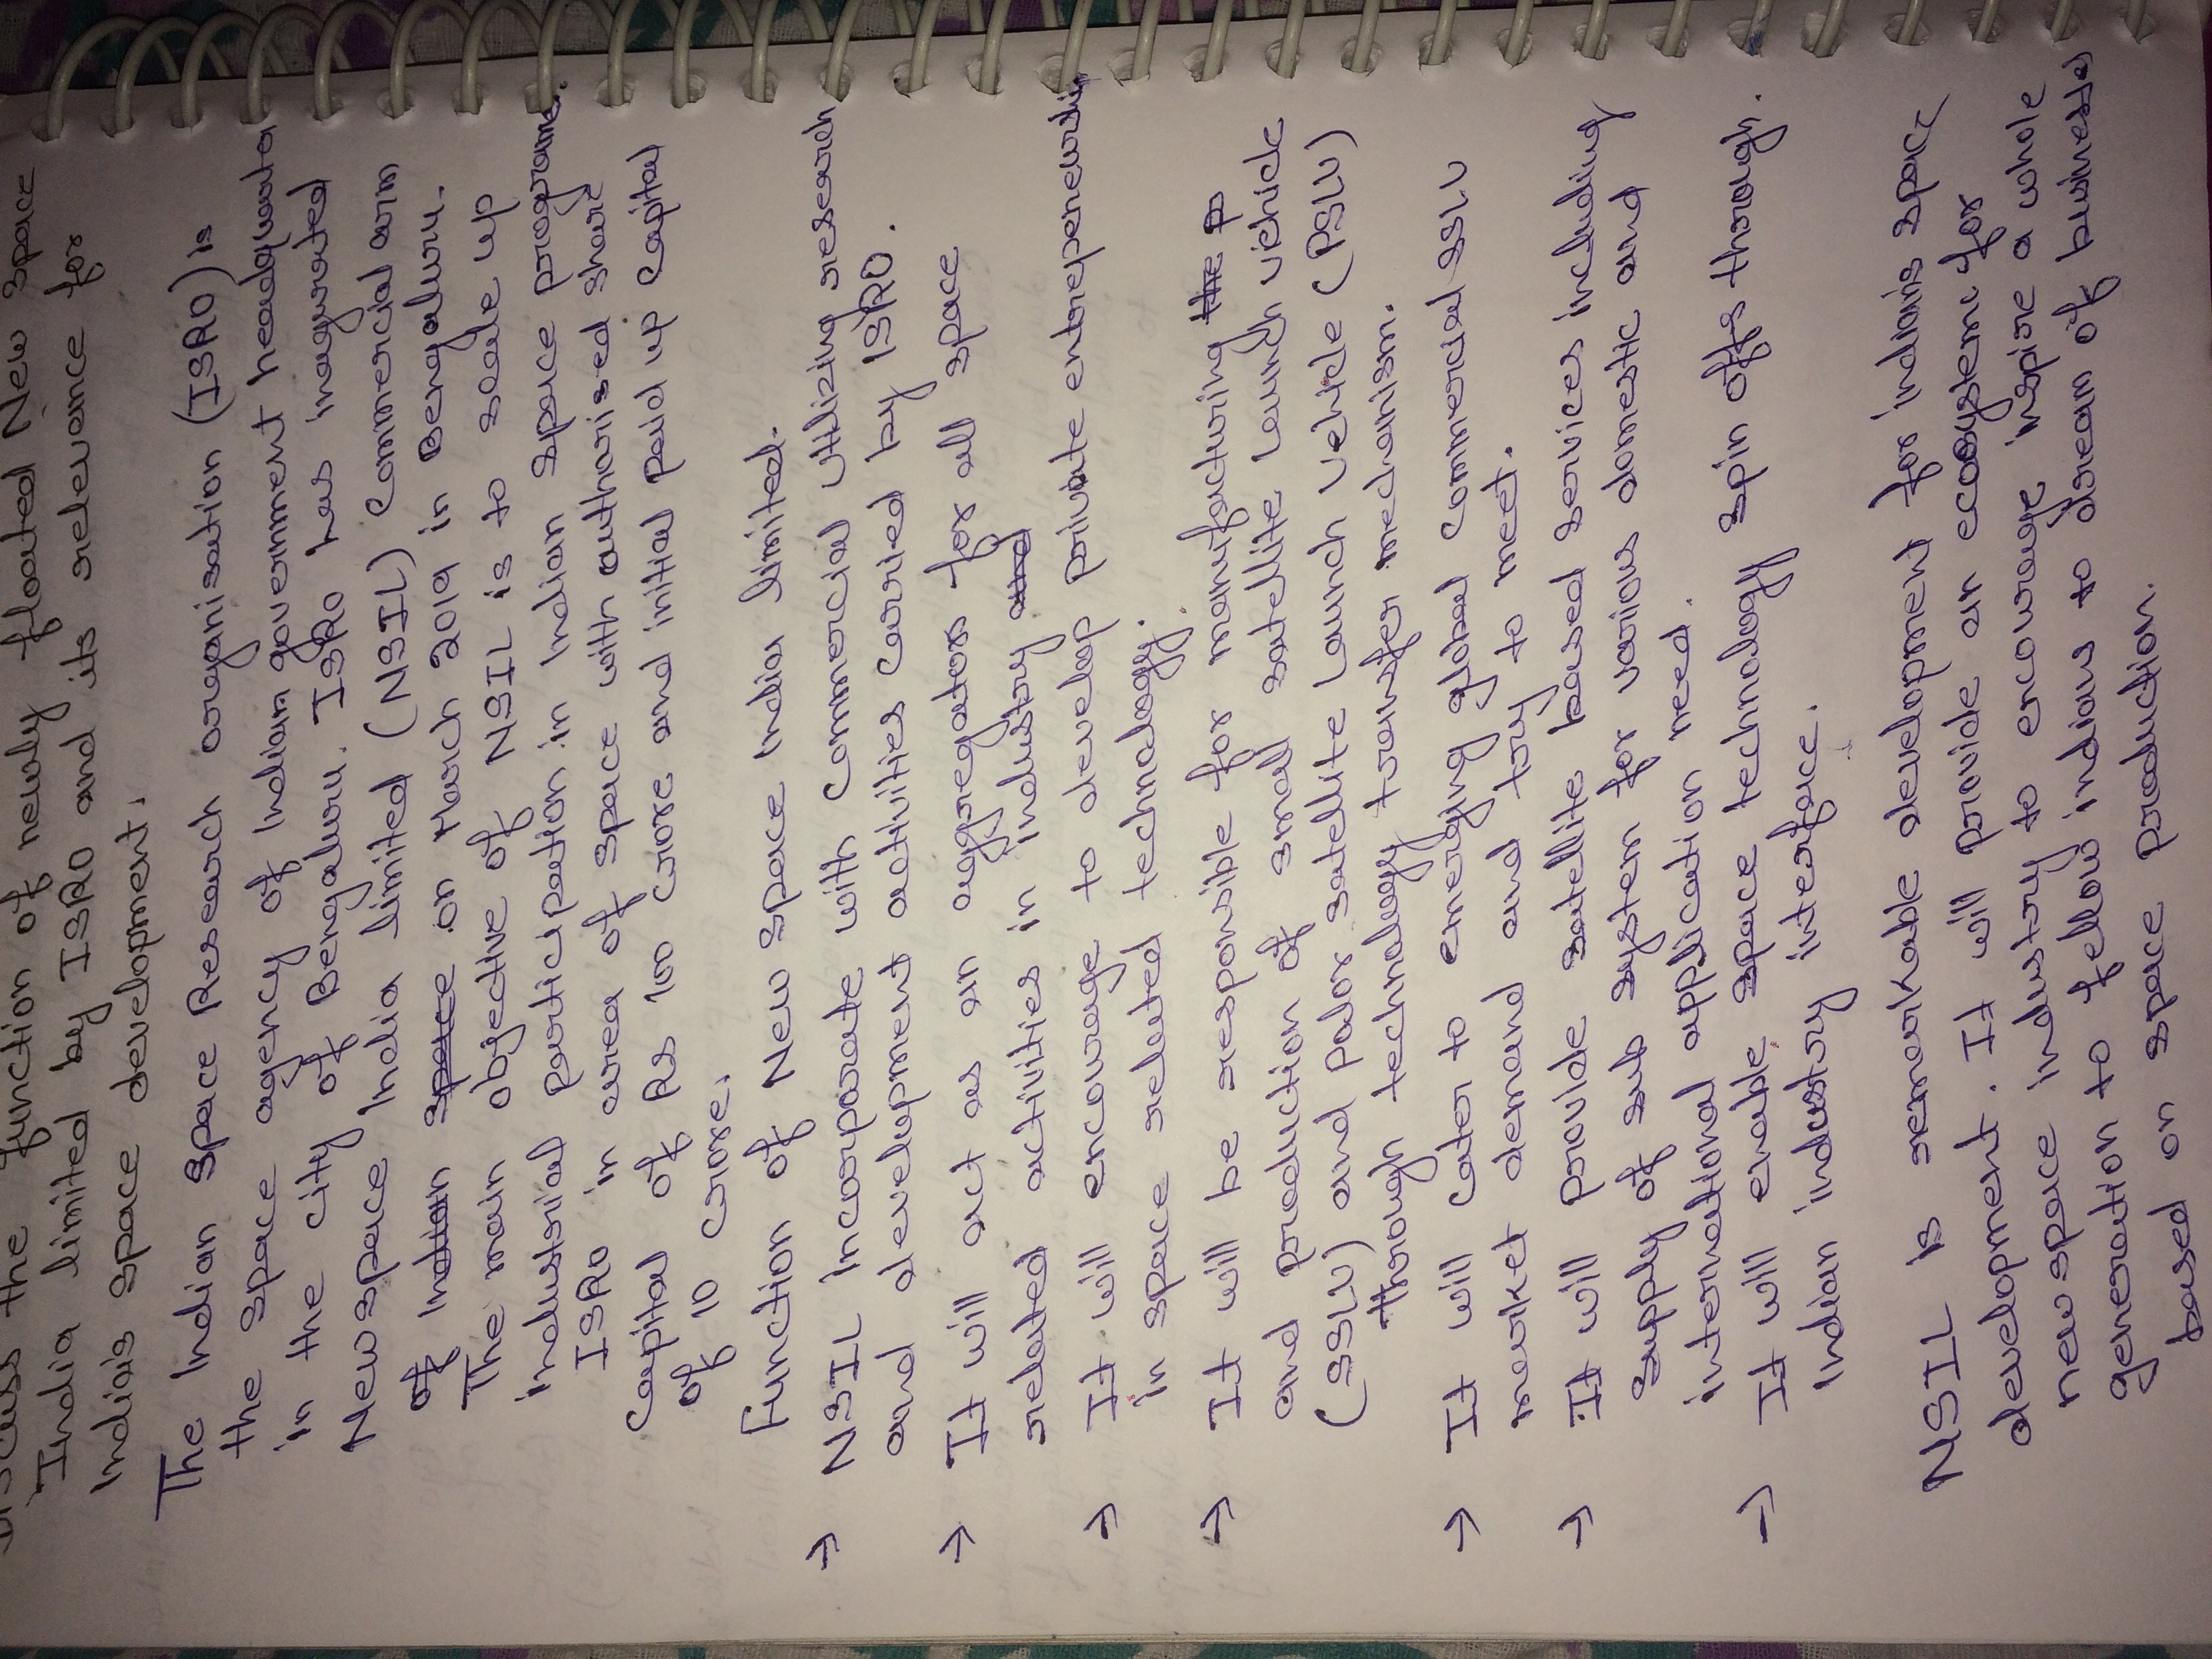 Discuss the function of newly floated New Space
India limited by ISRO and its relevance for
India's space development.
The Indian Space Research organisation (ISRO) is
the space agency of Indian government headquater
in the city of Bengaluru. ISRO has inagurated
New space India limited (NSIL) Commercial arm
of Indian space on March 2019 in Bengaluru.
The main objective of NSIL is to scale up
industrial participation in Indian space programe.
ISRO in area of space with authorised share
capital of Rs 100 crore and initial paid up capital
of 10 crore.
Function of New Space India limited.
→ NSIL Incorporate with commercial utilizing research
and development activities carried by ISRO.
→ It will act as an aggregator for all space
related activities in industry and
→ It will encourage to develop private entrepenership
in space related technology.
→ It will be responsible for manufacturing the P
and production of small satellite launch vehicle
(SSLV) and polar satellite launch vehicle (PSLV)
through technology transfer mechanism.
→ It will cater to emerging global commercial SSLV
market demand and try to meet.
→ It will provide satellite based services including
supply of sub system for various domestic and
international application need.
→ It will enable space technology spin offs through
Indian industry interface.
NSIL is remarkable development for indians space
development. It will provide an ecosystem for
new space industry to encourage inspire a whole
generation to fellow indians to dream of business
based on space production.